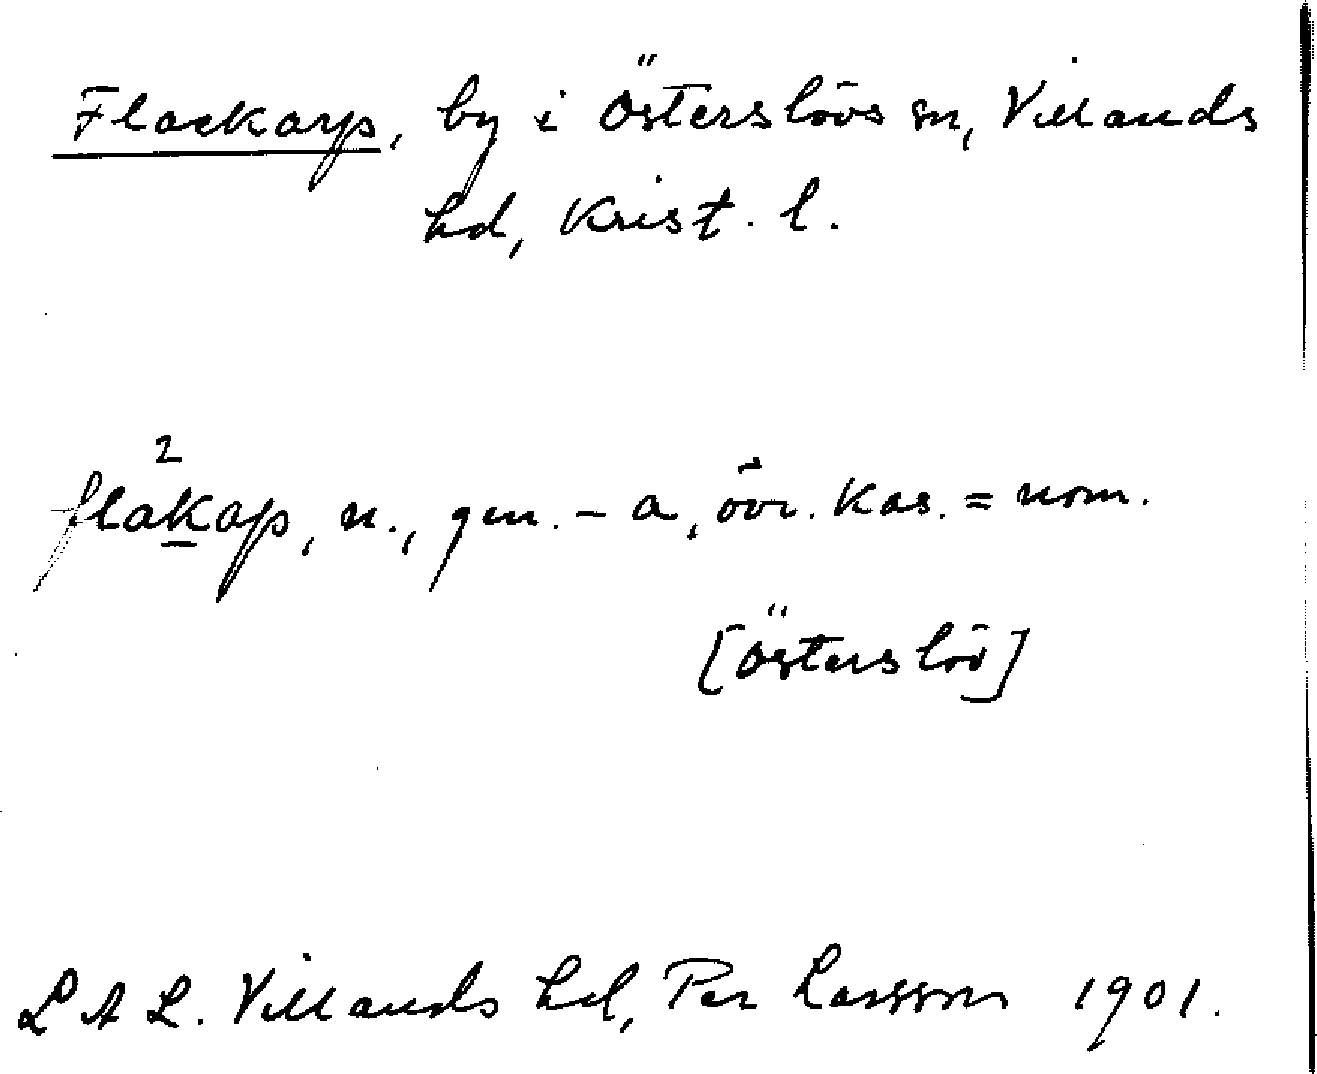 Flackarp, by i Österslövs sn, Villands
hd, Krist. l.
2
flakap, n., gen. - a, övr. kas. = nom.
[Österslöv]
L A L. Villands hd, Per Larsson 1901.